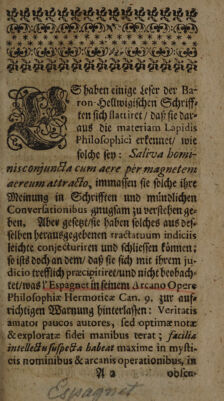 ES haben einige Leser der Ba-
ron-Hellwigischen Schriff-
ten sich flattiret / daß sie dar-
aus die materiam Lapidis
Philosophici erkennet / wie
solche sey: Saliva homi-
nis conjuncta cum aere per magnetem
aereum attracto, immassen sie solche ihre
Meinung in Schrifften und mündlichen
Conversationibus gnugsam zu verstehen ge-
ben. Aber gesetzt / sie haben solches aus des-
selben herausgegebenen tractatuum indiciis
leichte conjecturiren und schliessen können;
so ists doch an dem / daß sie sich mit ihrem ju-
dicio trefflich præcipitiret / und nicht beobach-
tet / was l'Espagnet in seinem Arcano Opere
Philosophiæ Hermeticæ Can. 9. zur auf-
richtigen Warnung hinterlassen: Veritatis
amator paucos autores, sed optimæ notæ
& exploratæ fidei manibus terat; facilia
intellectu suspecta habeat maxime in mysti-
cis nominibus & arcanis operationibus, in
A 2 obscu-
Espagnet